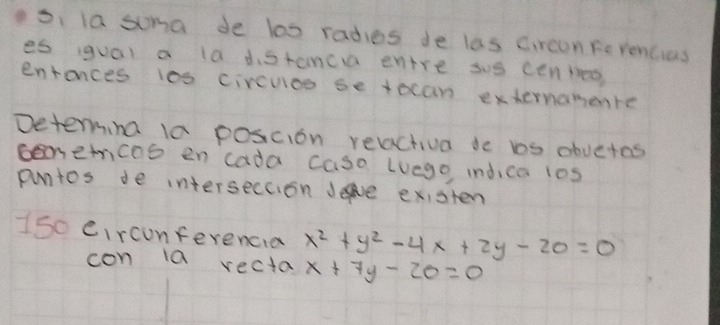 • Si la suma de los radios de las circunferencias
es igual a la distancia entre sus centros
entonces los circulos se tocan externamente
Determina la posición relactiva de los obuetos
Geometricos en cada caso luego, indica los
puntos de intersección que existen
150 Circunferencia x² + y² - 4x + 2y - 20 = 0
con la recta x + 7y - 20 = 0